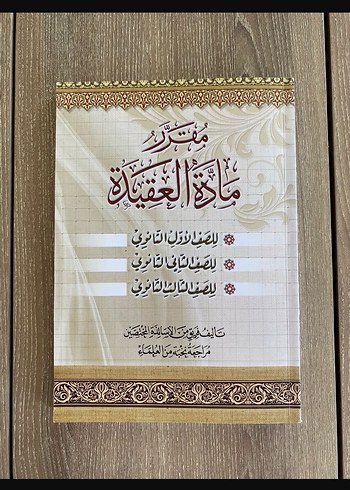 مُقَرَّر
مَادَّة العَقِيدَة
للصف الأول الثانوي
للصف الثاني الثانوي
للصف الثالث الثانوي
تأليف فريق من الأساتذة المختصين
مراجعة نخبة من العلماء